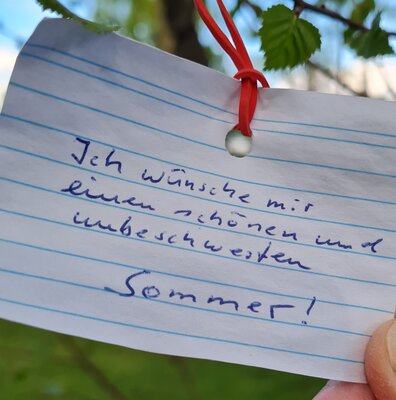 Ich wünsche mir
einen schönen und
unbeschwerten
Sommer!